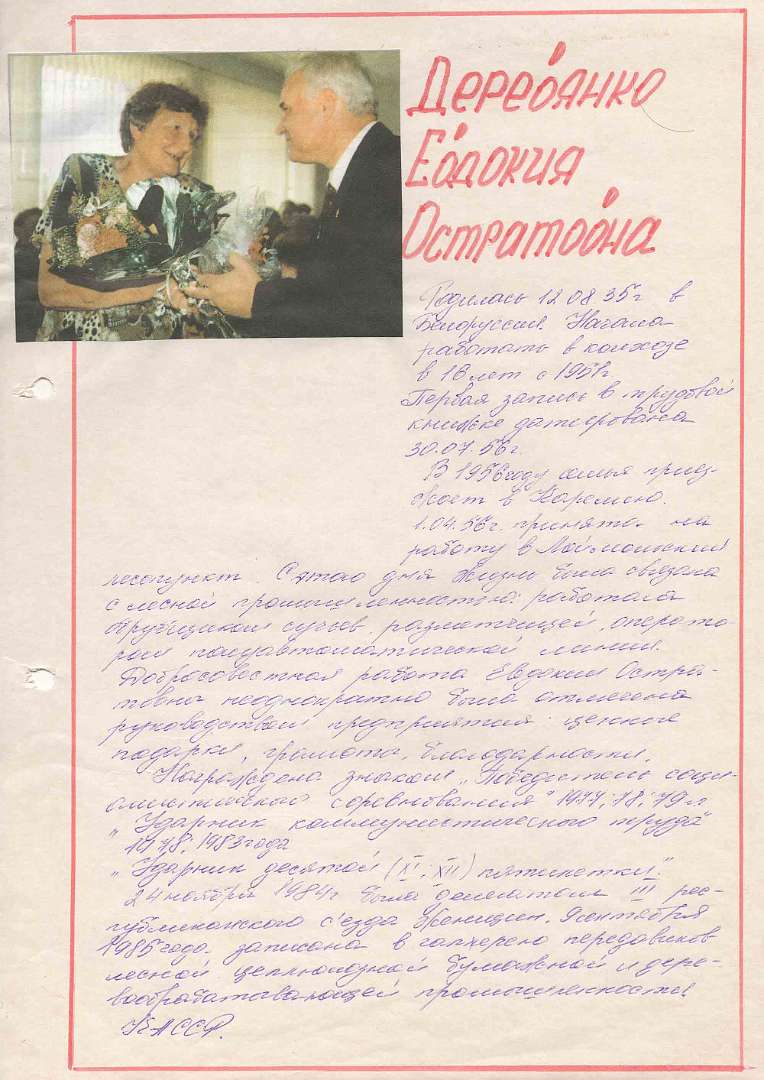 Деревянко
Евдокия
Остратовна
Родилась 12.08.35г в
Белоруссии. Начала
работать в колхозе
в 16 лет с 1951г.
Первая запись в трудовой
книжке датирована
30.07.56г.
В 1956году семья приез-
жает в Карелию.
1.04.56г. принята на
работу в Лоймолинский
лесопункт. С этого дня жизнь была связана
с лесной промышленностью: работала
обрубщиком сучьев, разметчицей, операто-
ром полуавтоматической линии.
Добросовестная работа Евдокии Остра-
товны неоднократно была отмечена
руководством предприятия: ценные
подарки, грамоты, благодарности.
Награждена знаком „Победитель соци-
алистический соревнования" 1977; 78; 79 г.г
„Ударник коммунистического труда"
1978; 1983года
„Ударник десятой (XI; XII) пятилетки."
24 ноября 1984г была делегатом III рес-
публиканского съезда женщин. 9 сентября
1985года записана в галерею передовиков
лесной целлюлозной бумажной и дере-
вообрабатывающей промышленности
КАССР.